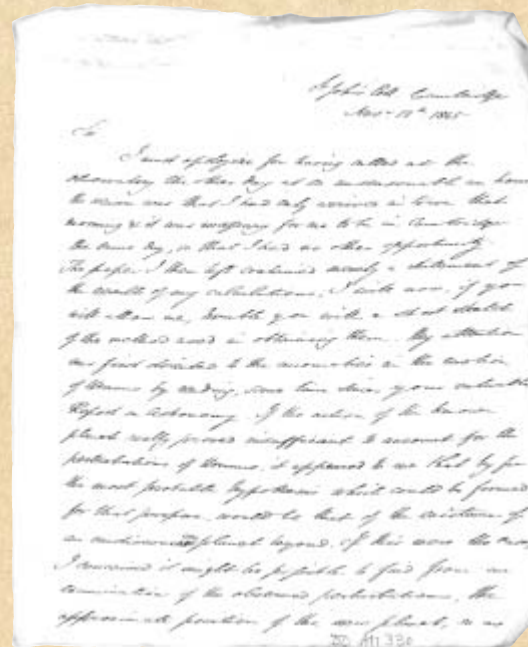 St John's Coll. Cambridge
1845
Sir
I must apologise for having called at the
observatory the other day at so unseasonable an hour
the reason was that I had only arrived in town that
morning & it was necessary for me to be in Cambridge
the same day, so that I had no other opportunity
The paper I then left contained merely a statement of
the results of my calculations, I will now, if you
will allow me, trouble you with a short sketch
of the method used in obtaining them. My attention
was first directed to the in the motion
of Uranus by reading, some time since, your valuable
Report on Astronomy. If the action of the known
planets really proved insufficient to account for the
perturbations of Uranus, it appeared to me that by far
the most probable hypothesis which could be formed
for that purpose, would be that of the existence of
an undiscovered planet beyond. If this were the case,
I conceived it might be possible to find from an
examination of the observed perturbations, the
approximate position of the new planet,